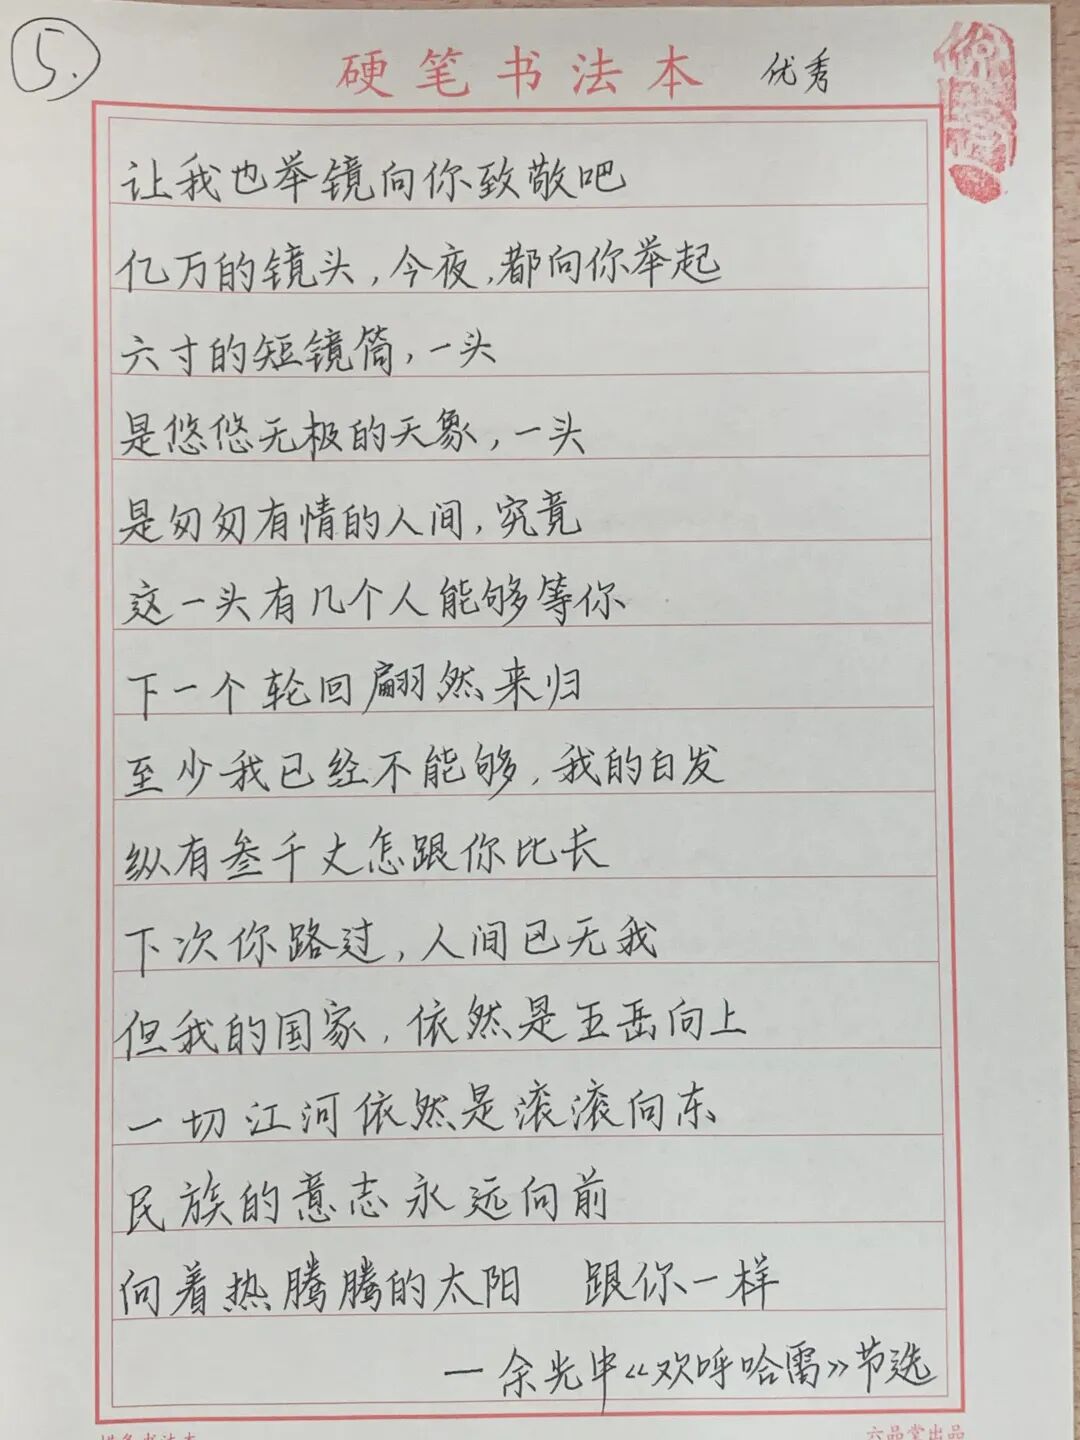 5.
硬笔书法本 优秀
让我也举镜向你致敬吧
亿万的镜头,今夜,都向你举起
六寸的短镜筒,一头
是悠悠无极的天象,一头
是匆匆有情的人间,究竟
这一头有几个人能够等你
下一个轮回翩然来归
至少我已经不能够,我的白发
纵有叁千丈怎跟你比长
下次你路过,人间已无我
但我的国家,依然是五岳向上
一切江河依然是滚滚向东
民族的意志永远向前
向着热腾腾的太阳 跟你一样
—余光中《欢呼哈雷》节选
六品堂出品